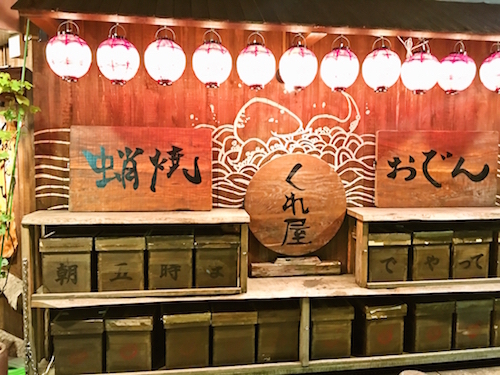 蛸焼
くれ屋
おでん
朝五時までやって